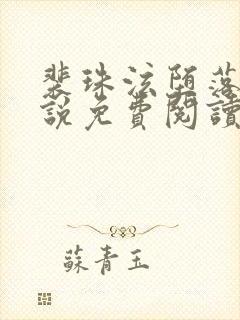 裴珠泫堕落
說免費閱讀
蘇青玉